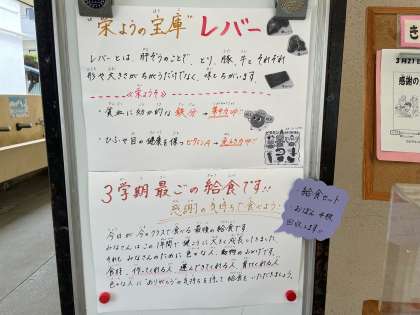 "栄ようの宝庫" レバー
レバーとは、肝ぞうのことで、とり、豚、牛とそれぞれ
形や大きさがちがうだけでなく、味もちがいます。
《栄ようそ》
・貧血に効か的な 鉄分 →
・ひふや目の健康を保つビタミンA →
3学期最ごの給食です!!
感謝の気持ちで食べよう
今日が今のクラスで食べる最後の給食です。
みなさんはこの1年間で健こうに大きく成長しました。
それもみなさんのために色々な人、動物のおかげです。
食材、作ってくれる人、運んできてくれる人、育ててくれる人、
色々な人にありがとうの気持ちを持って給食をいただきましょう。
給食セット
おぼん
回収します。
き
3月21日
感謝の